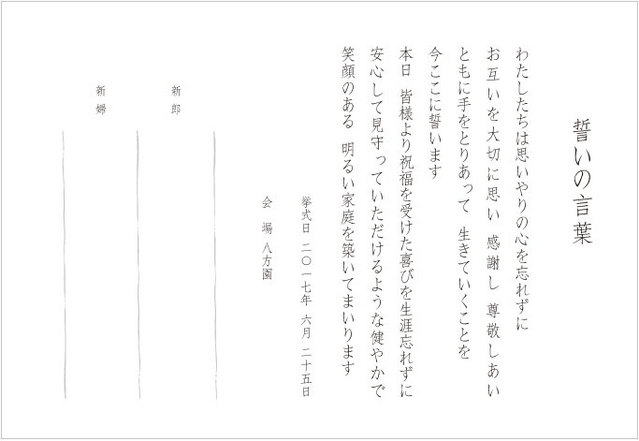 誓いの言葉
わたしたちは思いやりの心を忘れずに
お互いを大切に思い 感謝し 尊敬しあい
ともに手をとりあって 生きていくことを
今ここに誓います
本日 皆様より祝福を受けた喜びを生涯忘れずに
安心して見守っていただけるような健やかで
笑顔のある 明るい家庭を築いてまいります
挙式日 二〇一七年 六月 二十五日
会 場 八方園
新郎
新婦